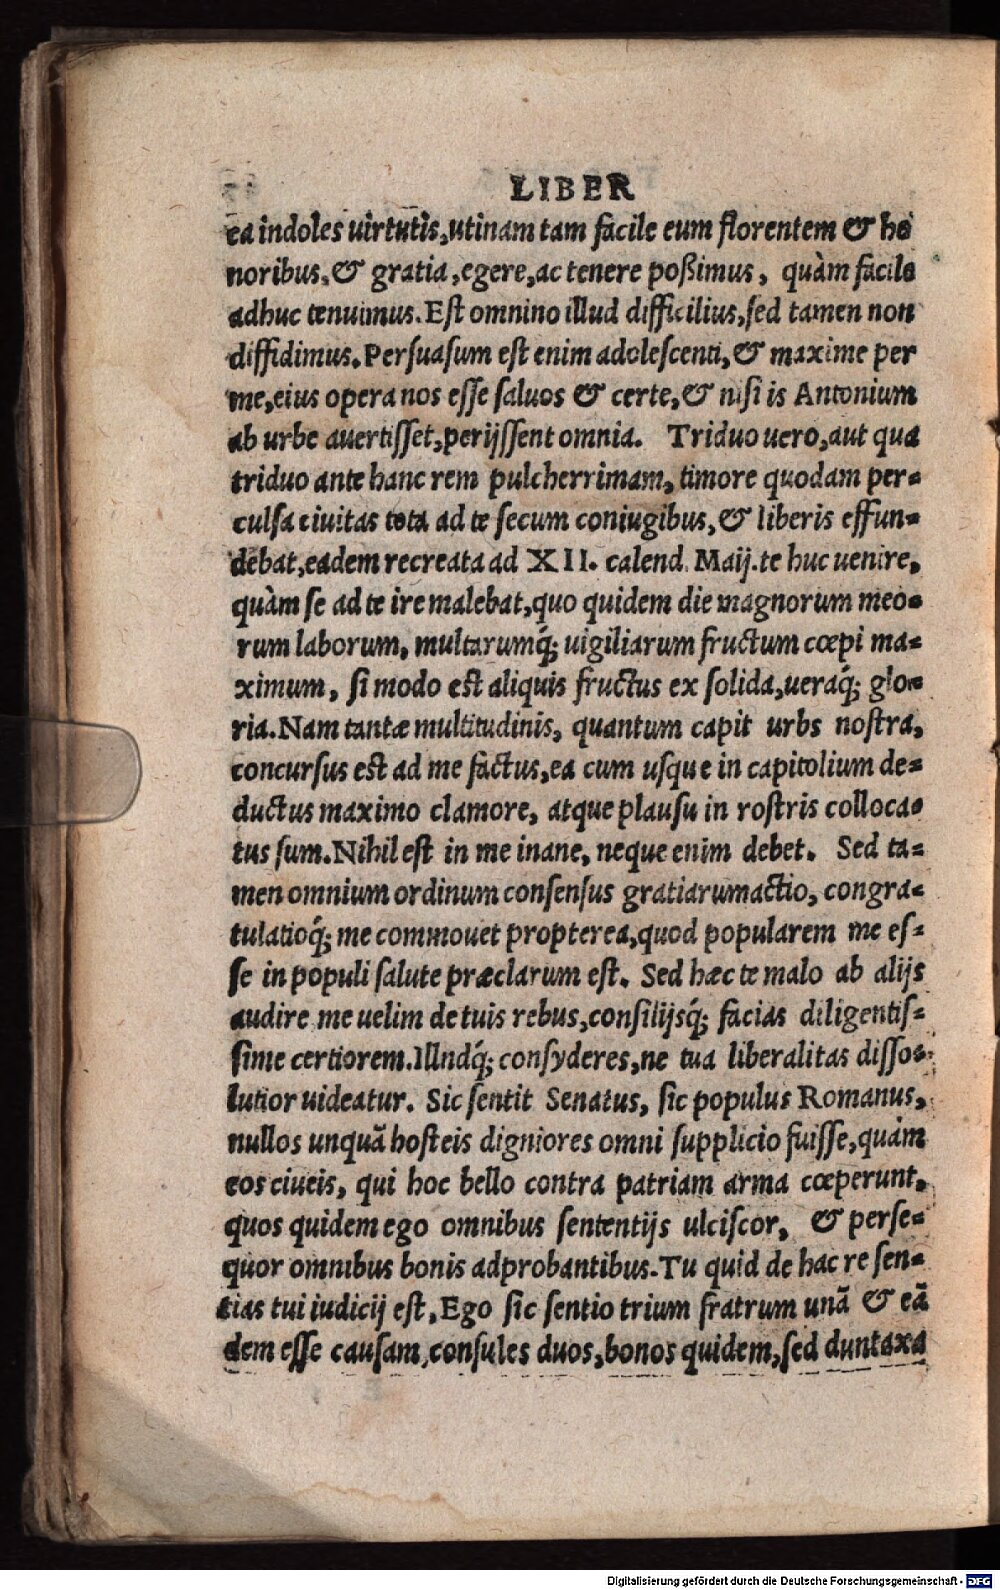 LIBER
ea indoles uirtutis, utinam tam facile eum florentem & ho
noribus, & gratia, egere, ac tenere poßimus, quàm facile
adhuc tenuimus. Est omnino illud difficilius, sed tamen non
diffidimus. Persuasum est enim adolescenti, & maxime per
me, eius opera nos esse saluos & certe, & nisi is Antonium
ab urbe auertisset, perijssent omnia. Triduo uero, aut qua
triduo ante hanc rem pulcherrimam, timore quodam per=
culsa ciuitas tota ad te secum coniugibus, & liberis effun=
debat, eadem recreata ad XII. calend. Maij. te huc uenire,
quàm se ad te ire malebat, quo quidem die magnorum meo=
rum laborum, multarumq́; uigiliarum fructum cœpi ma=
ximum, si modo est aliquis fructus ex solida, ueraq́; glo=
ria. Nam tantæ multitudinis, quantum capit urbs nostra,
concursus est ad me factus, ea cum usque in capitolium de=
ductus maximo clamore, atque plausu in rostris colloca=
tus sum. Nihil est in me inane, neque enim debet. Sed ta=
men omnium ordinum consensus gratiarumactio, congra=
tulatioq́; me commouet propterea, quod popularem me es=
se in populi salute præclarum est. Sed hæc te malo ab alijs
audire me uelim de tuis rebus, consilijsq́; facias diligentis=
sime certiorem. Illndq́; consyderes, ne tua liberalitas disso=
lutior uideatur. Sic sentit Senatus, sic populus Romanus,
nullos unquã hosteis digniores omni supplicio fuisse, quàm
eos ciueis, qui hoc bello contra patriam arma cœperunt,
quos quidem ego omnibus sententijs ulciscor, & perse=
quor omnibus bonis adprobantibus. Tu quid de hac re sen=
tias tui iudicij est, Ego sic sentio trium fratrum unã & eã
dem esse causam, consules duos, bonos quidem, sed duntaxa
Digitalisierung gefördert durch die Deutsche Forschungsgemeinschaft - DFG